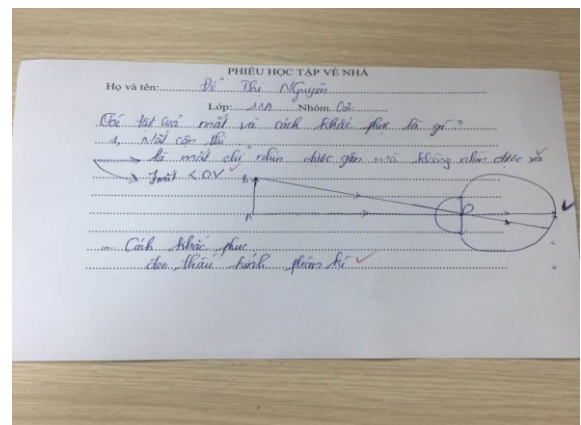 PHIẾU HỌC TẬP VỀ NHÀ
Họ và tên: Đỗ Thị Nguyên
Lớp: 11A Nhóm 02
Các tật của mắt và cách khắc phục là gì?
1, Mắt cận thị
là mắt chỉ nhìn được gần mà không nhìn được xa
fmắt < OV
B
A
O
Cách khắc phục
đeo thấu kính phân kì